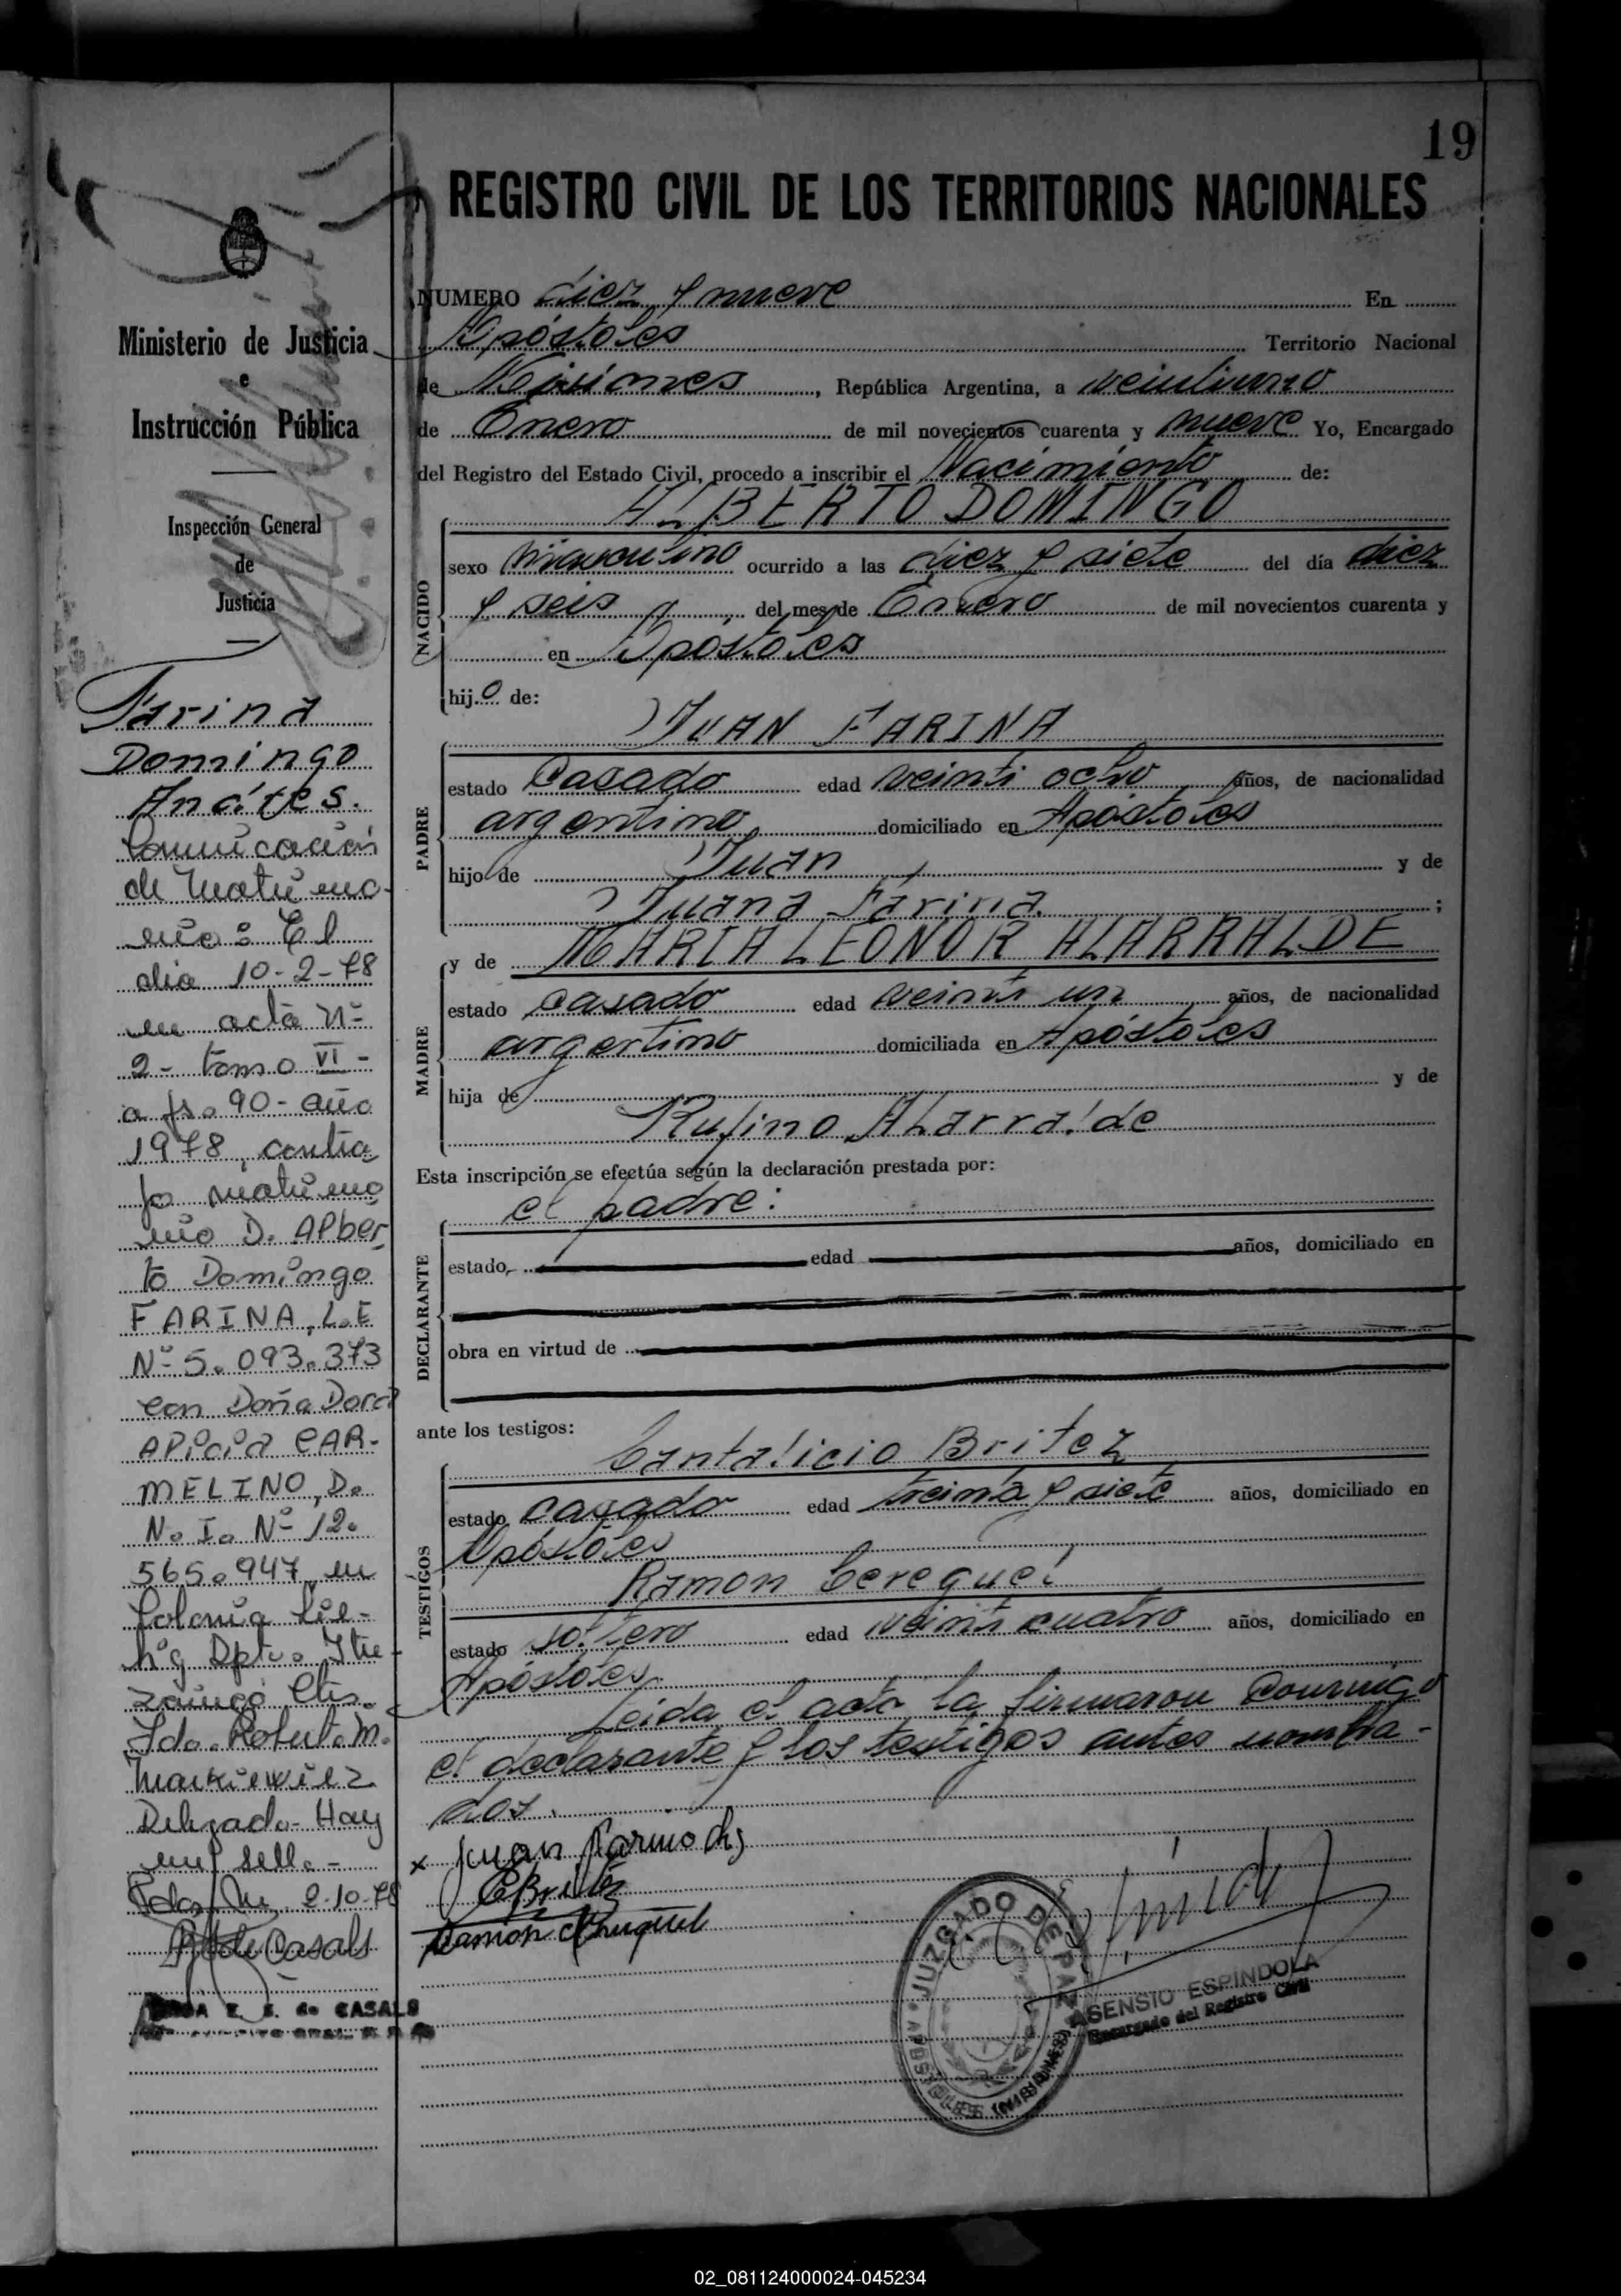 19
REGISTRO CIVIL DE LOS TERRITORIOS NACIONALES
Ministerio de Justicia
e
Instrucción Pública
Inspección General
de
Justicia
Farina
Domingo
Comunicación
de Matrimo-
nio: El
dia 10-2-78
en acta Nº
2- tomo VI-
a fs. 90- año
1978, contra
jo matrimo
nio D. Alber
to Domingo
FARINA, L.E
Nº 5.093.373
con Doña Dora
Alicia CAR-
MELINO, D.
N. I. Nº 12.
565.947 en
Colonia Lie-
big Dpto. Itu-
zaingó Ctes.
Fdo. Robert. M.
Markiewicz
Delegado- Hay
un sello-
2-10-78
de Casals
E. S. de CASALS
NUMERO diez y nueve En
Apóstoles Territorio Nacional
de Misiones, República Argentina, a veintiuno
de Enero de mil novecientos cuarenta y nueve Yo, Encargado
del Registro del Estado Civil, procedo a inscribir el Nacimiento de:
NACIDO
ALBERTO DOMINGO
sexo masculino ocurrido a las diez y siete del día diez
y seis del mes de Enero de mil novecientos cuarenta y
en Apostoles
hijo de:
PADRE
JUAN FARINA
estado Casado edad veinti ocho años, de nacionalidad
argentino domiciliado en Apóstoles
hijo de Juan y de
Juana Farina ;
MADRE
y de MARIA LEONOR ALARRALDE
estado casado edad veinti un años, de nacionalidad
argentino domiciliada en Apóstoles
hija de y de
Rufino Alarralde
Esta inscripción se efectúa según la declaración prestada por:
el padre:
DECLARANTE
estado edad años, domiciliado en
obra en virtud de
ante los testigos:
TESTIGOS
Cantalicio Britez
estado casado edad treinta y siete años, domiciliado en
Apóstoles
Ramon
estado soltero edad veinti cuatro años, domiciliado en
Apóstoles
Leida el acta la firmaron conmigo
el declarante y los testigos antes nombra-
dos.
x Juan
CBritez
Ramon
JUZGADO DE PAZ
APOSTOLES (MISIONES)
ASENSIO ESPINDOLA
Encargado del Registro Civil
02_081124000024-045234